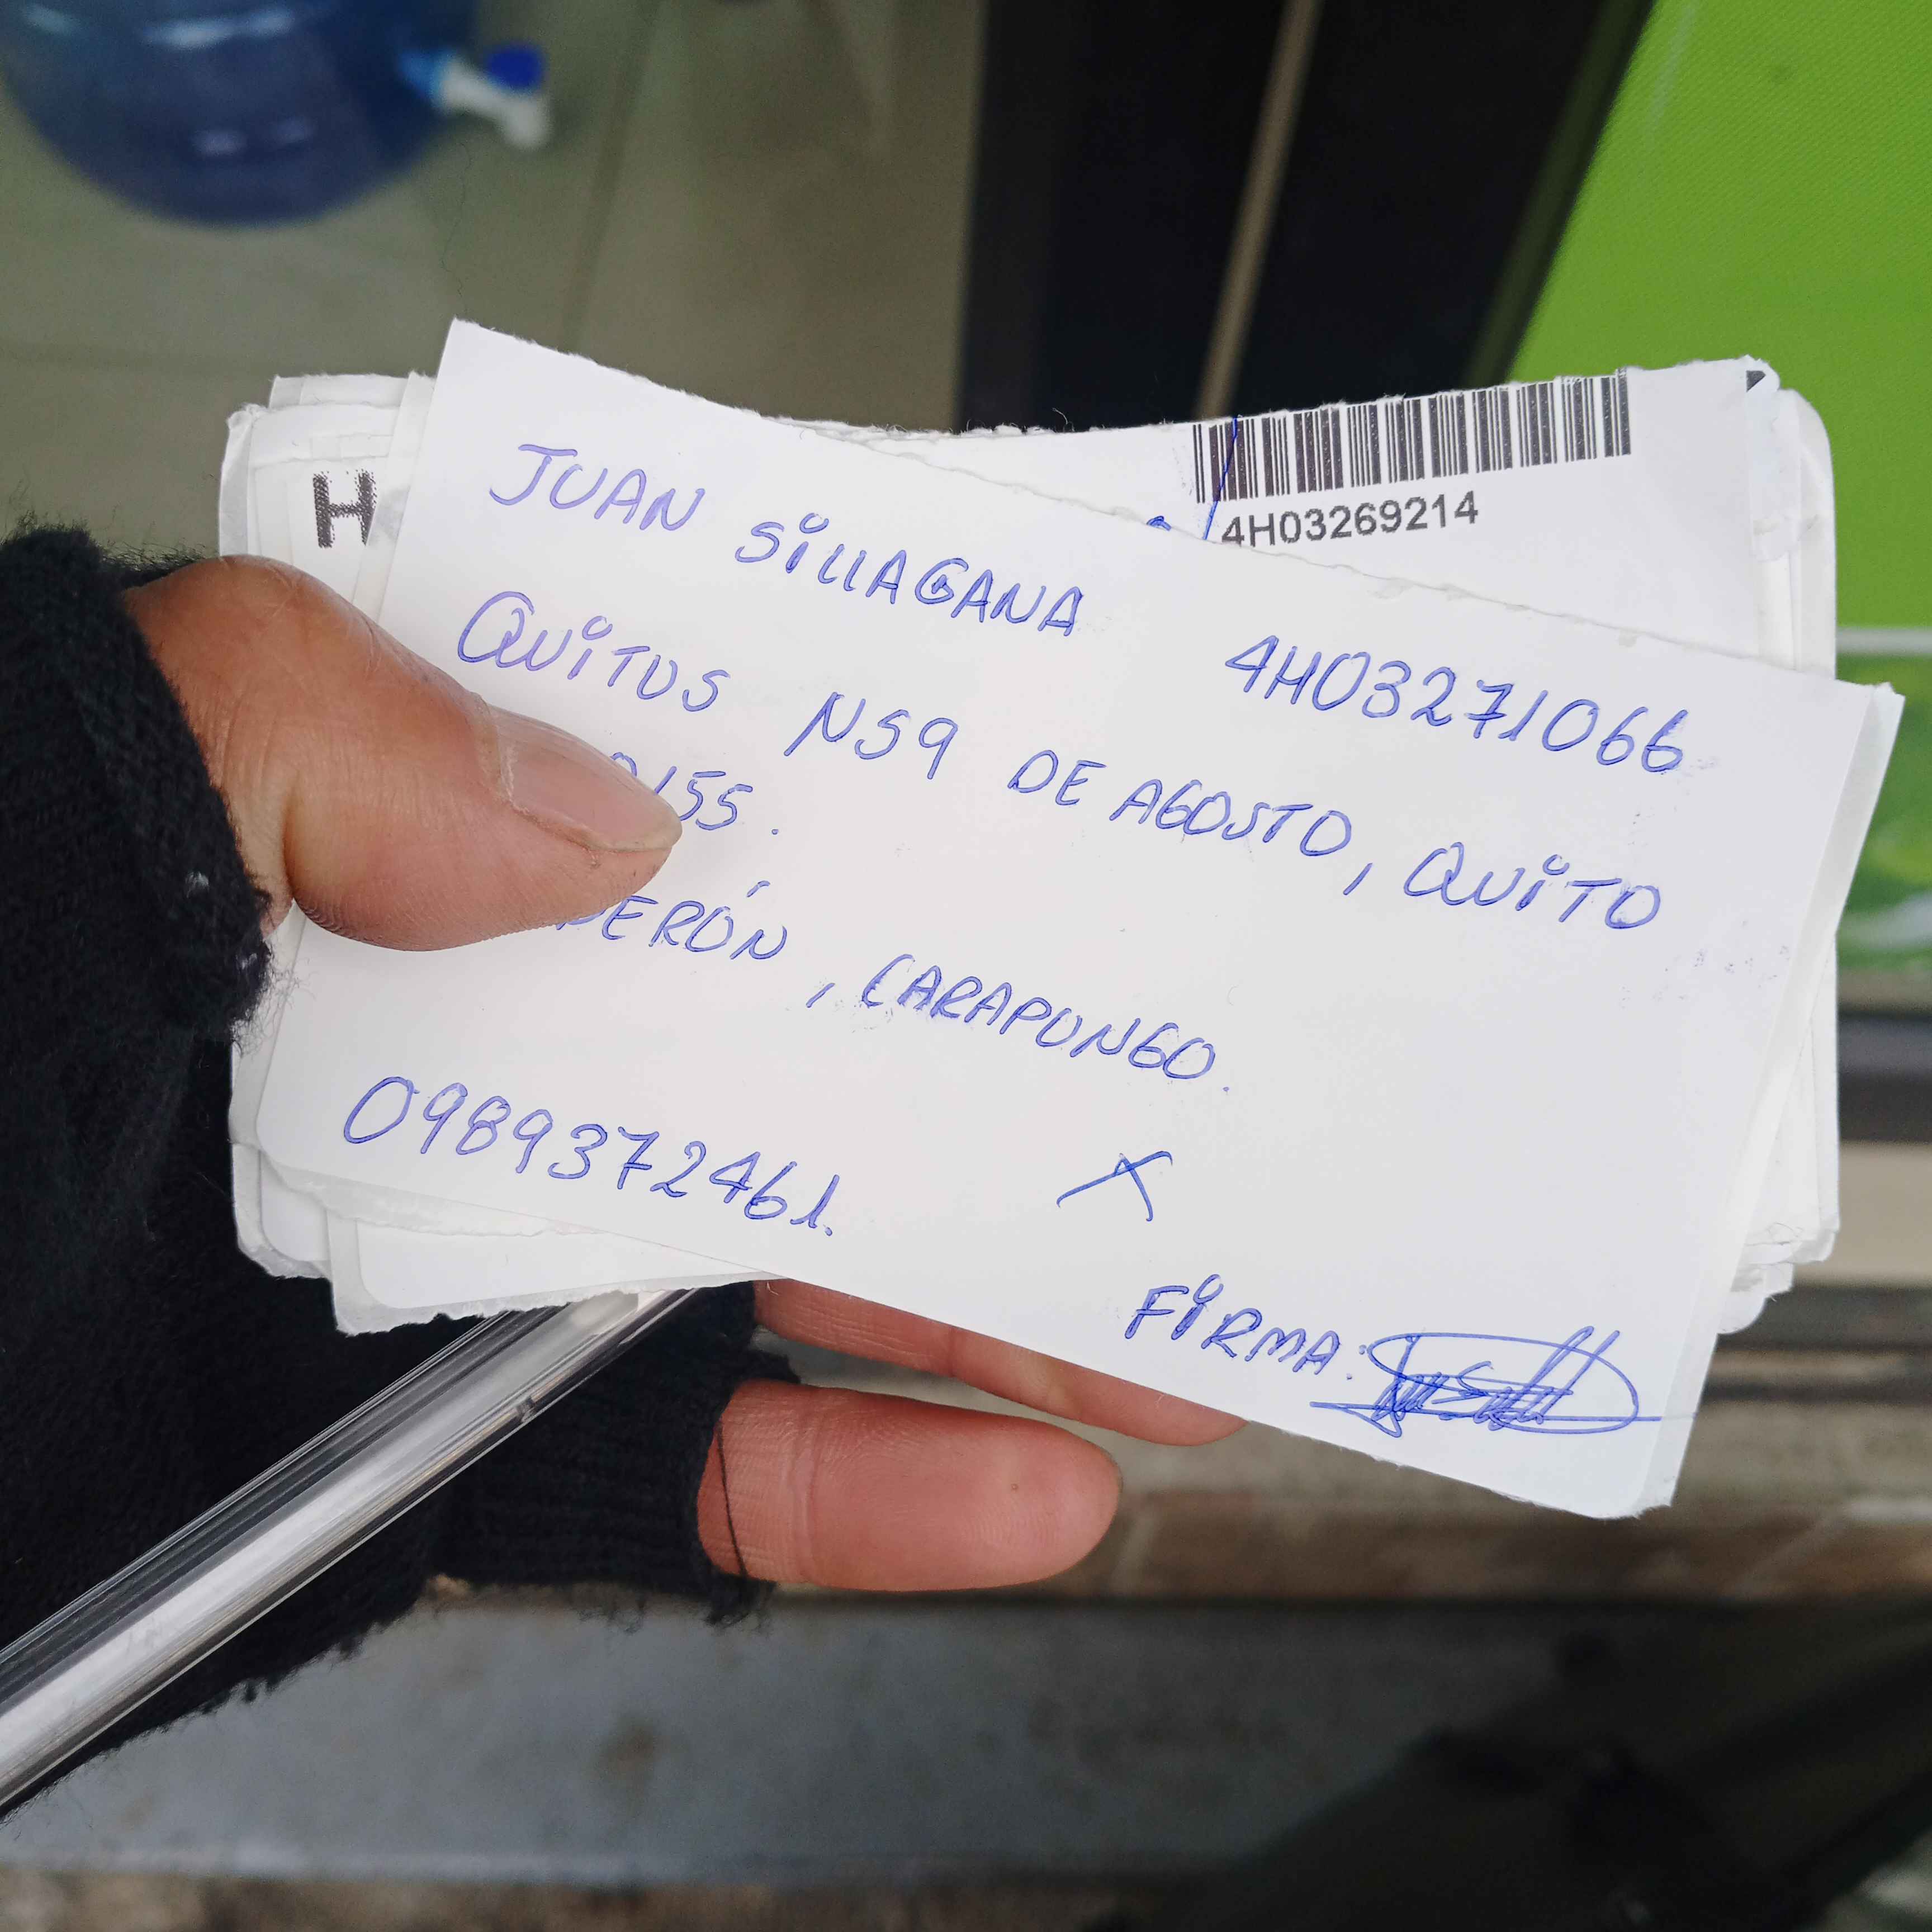 H
4H03269214
JUAN SillAGANA
4H03271066
QUiTUS NS9 DE AGOSTO, QUiTO
155.
DERÓN, CARAPUNGO.
0989372461.
X
FiRMA: